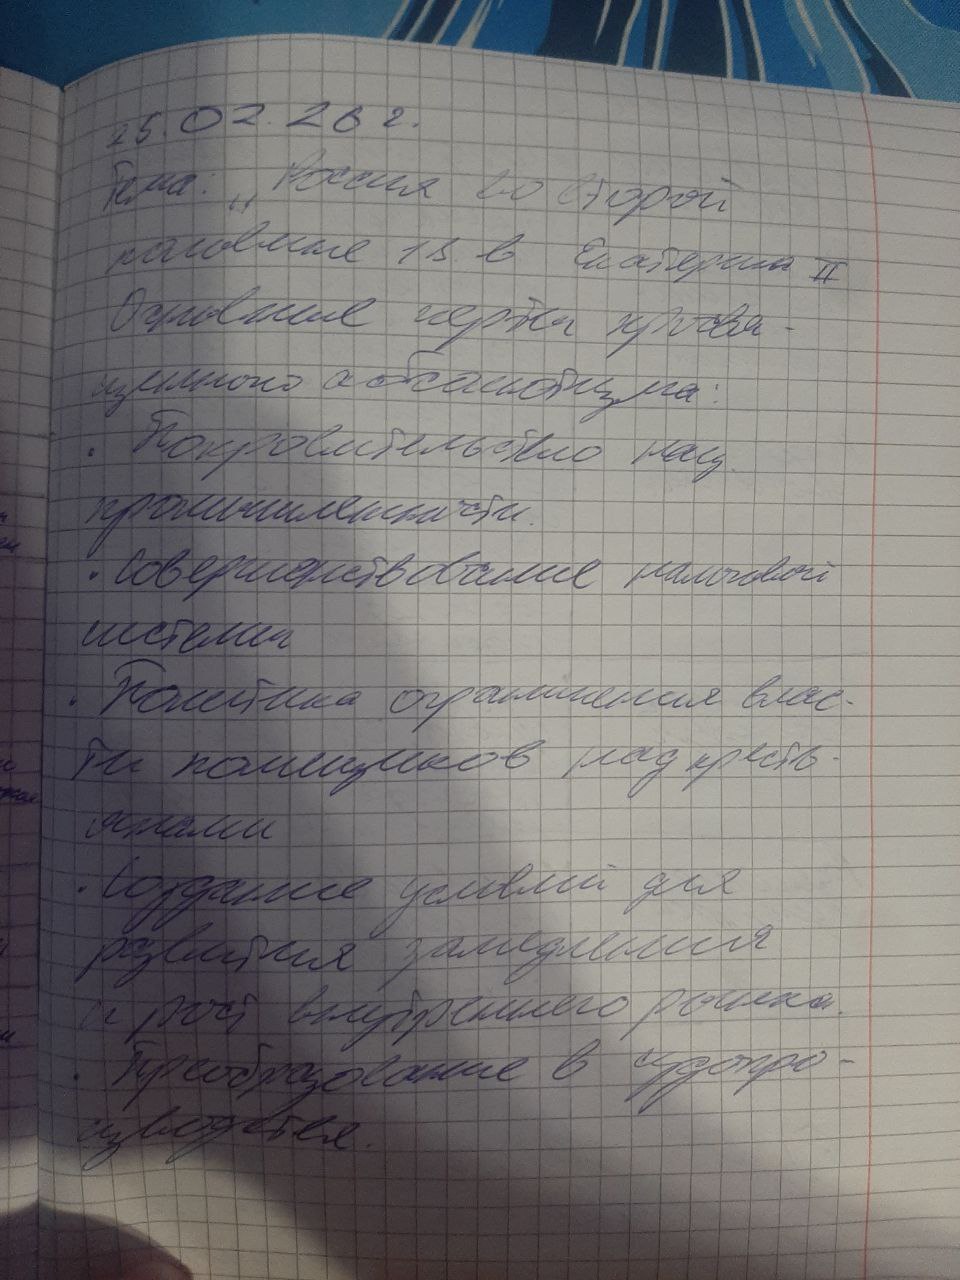 25.02.26 г.
Тема: "Россия во второй
половине 18 в Екатерина II
Основные черты просве-
щенного абсолютизма:
· Покровительство нац.
промышленности.
· Совершенствование налоговой
системы
· Политика ограничения влас-
ти помещиков над кресть-
янами
· Создание условий для
развития
и рост внутреннего рынка.
· Преобразование в судопро-
изводстве.